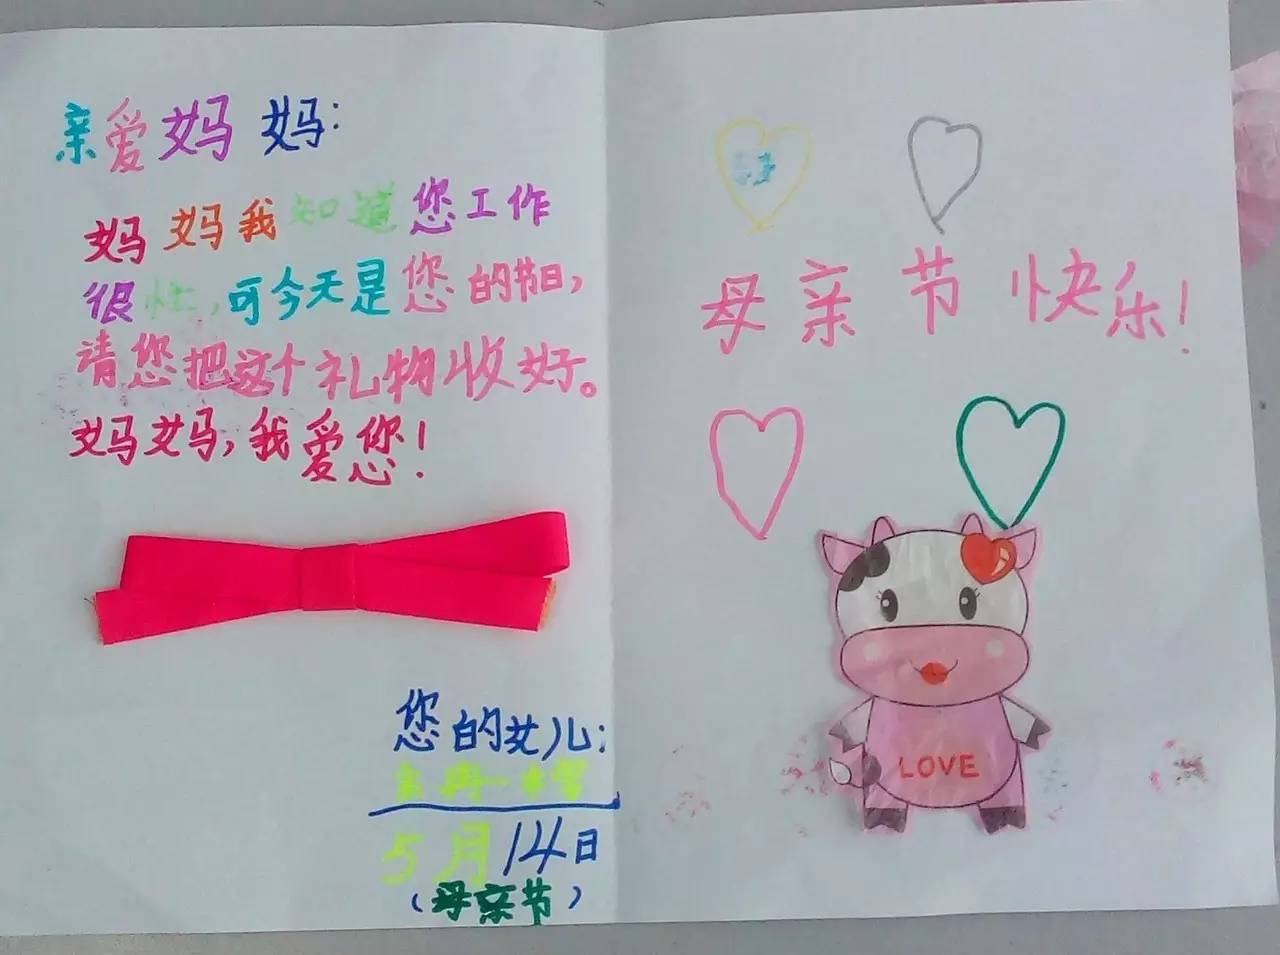 亲爱妈妈:
妈妈我知道您工作
很忙,可今天是您的节日,
请您把这个礼物收好。
妈妈,我爱您!
您的女儿:
5月14日
(母亲节)
母亲节快乐!
LOVE